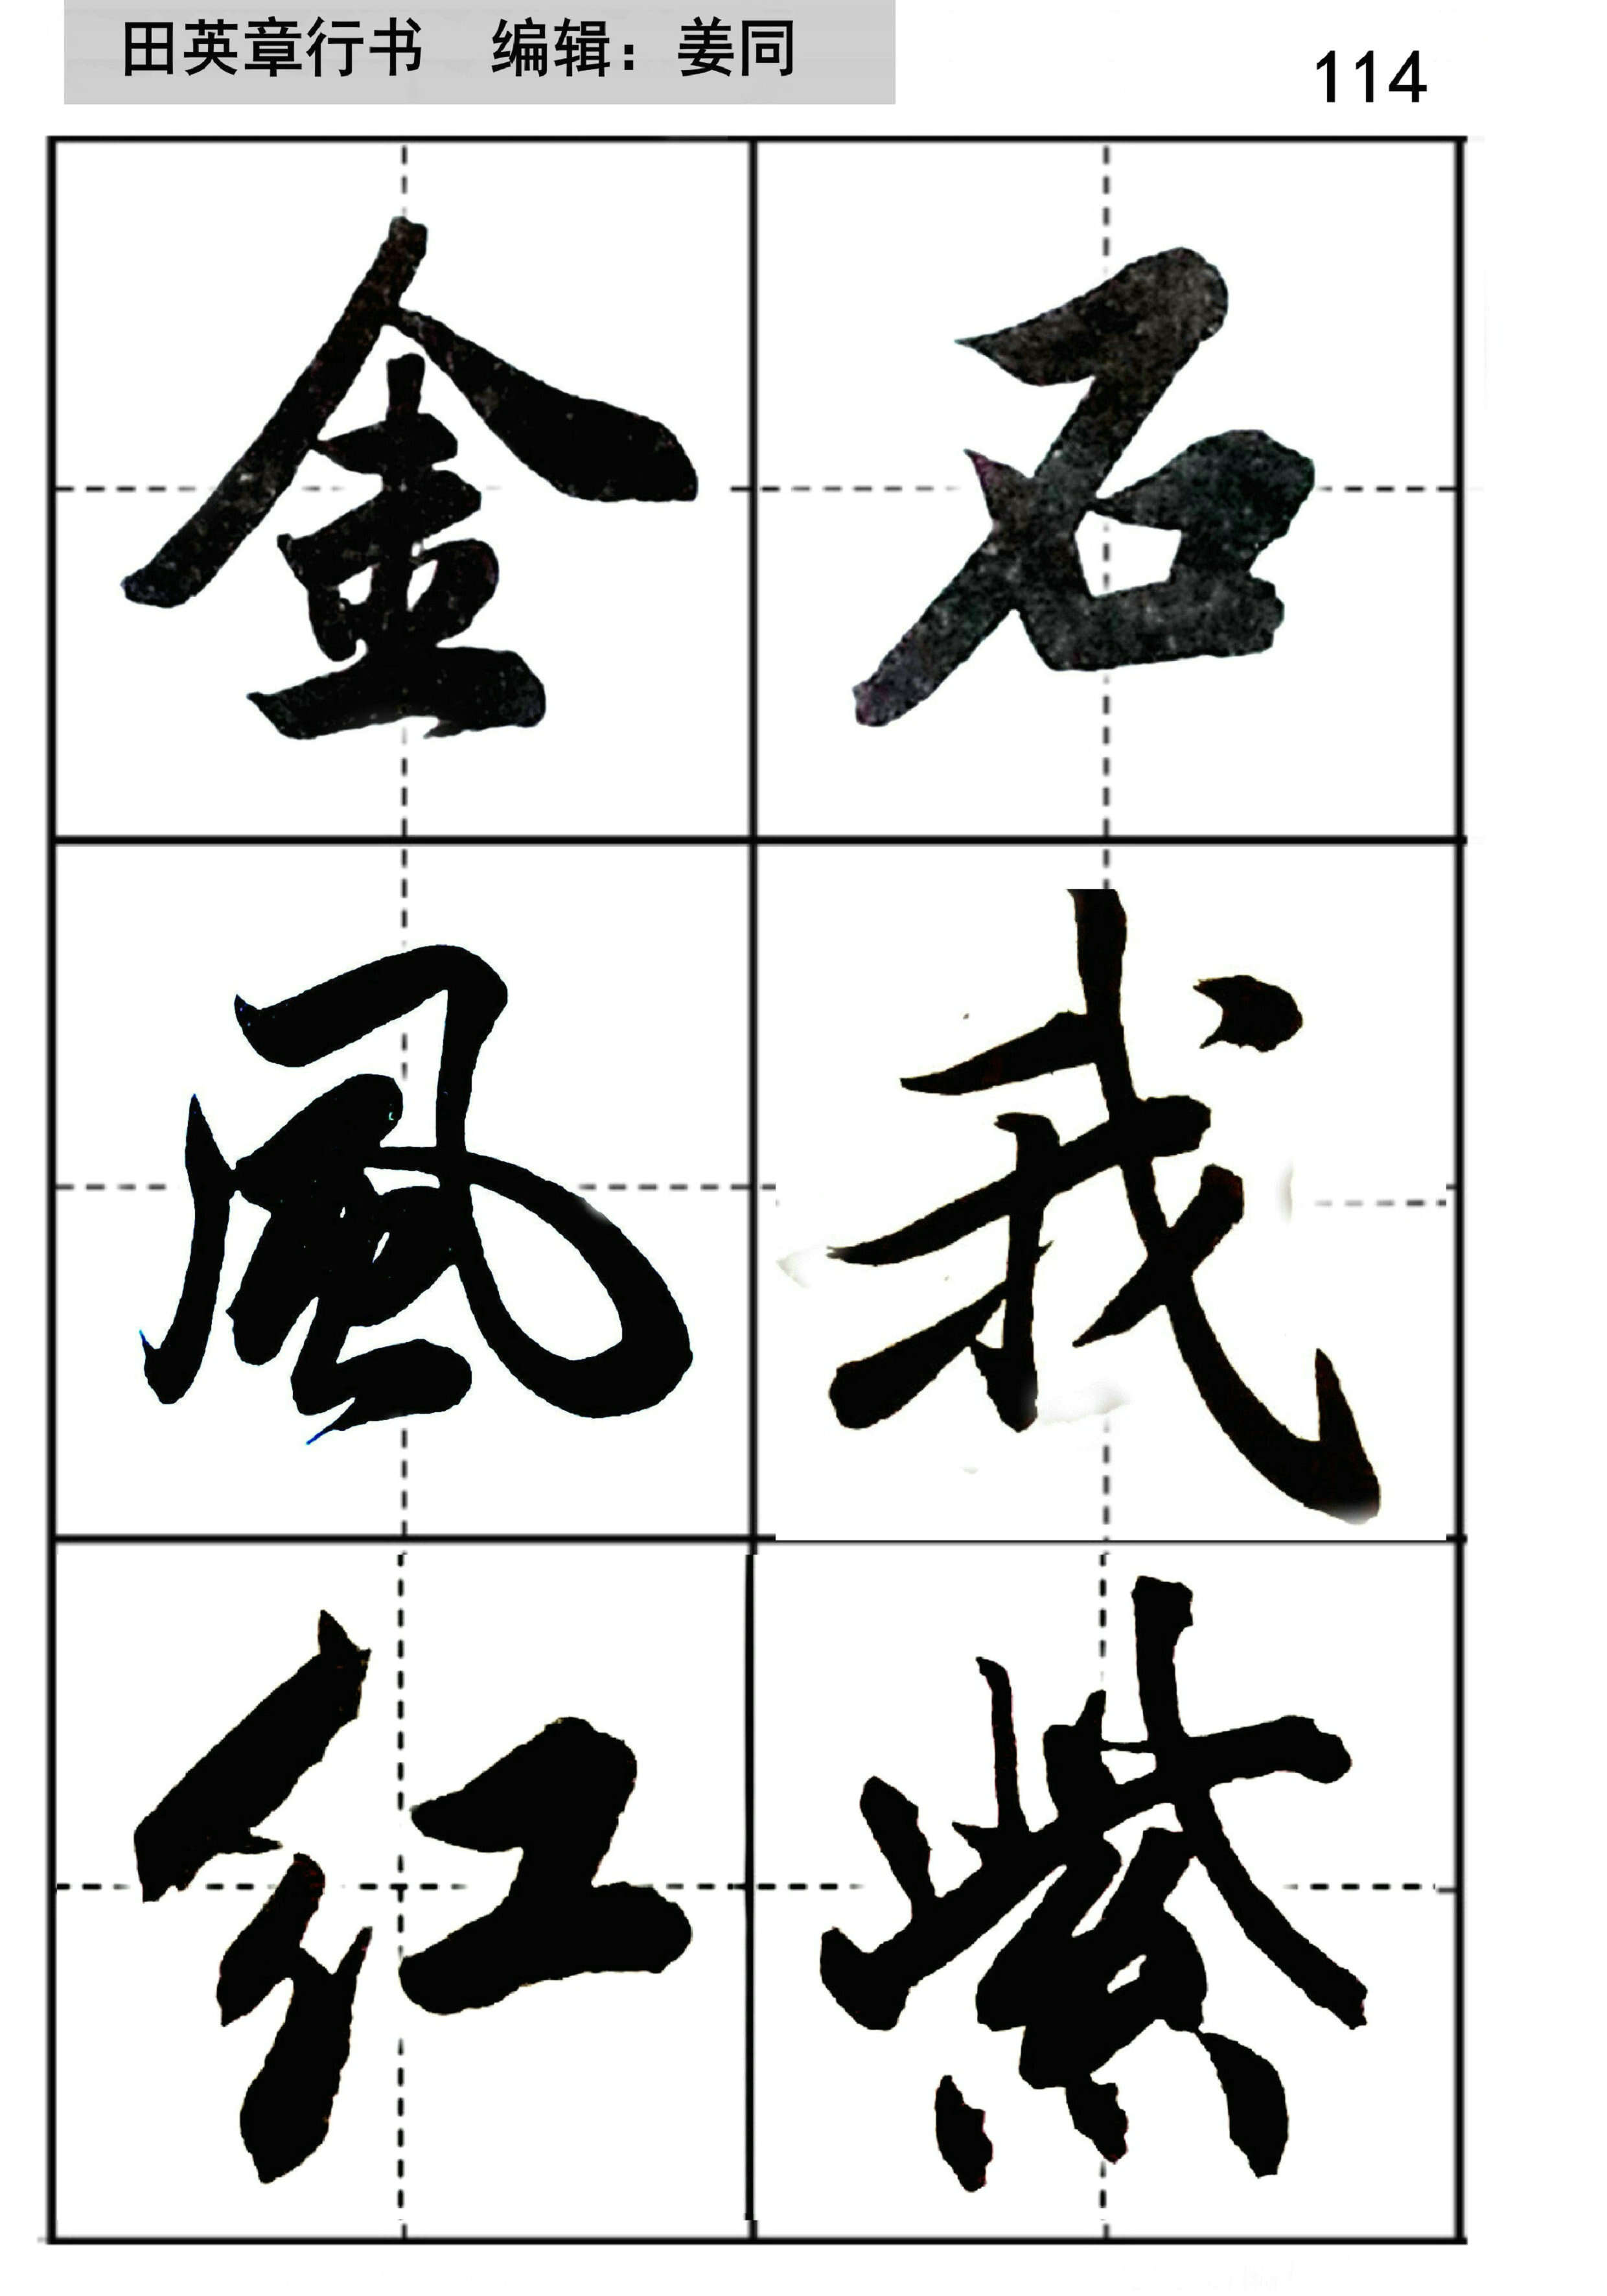 田英章行书 编辑：姜同
114
金石
風我
红紫